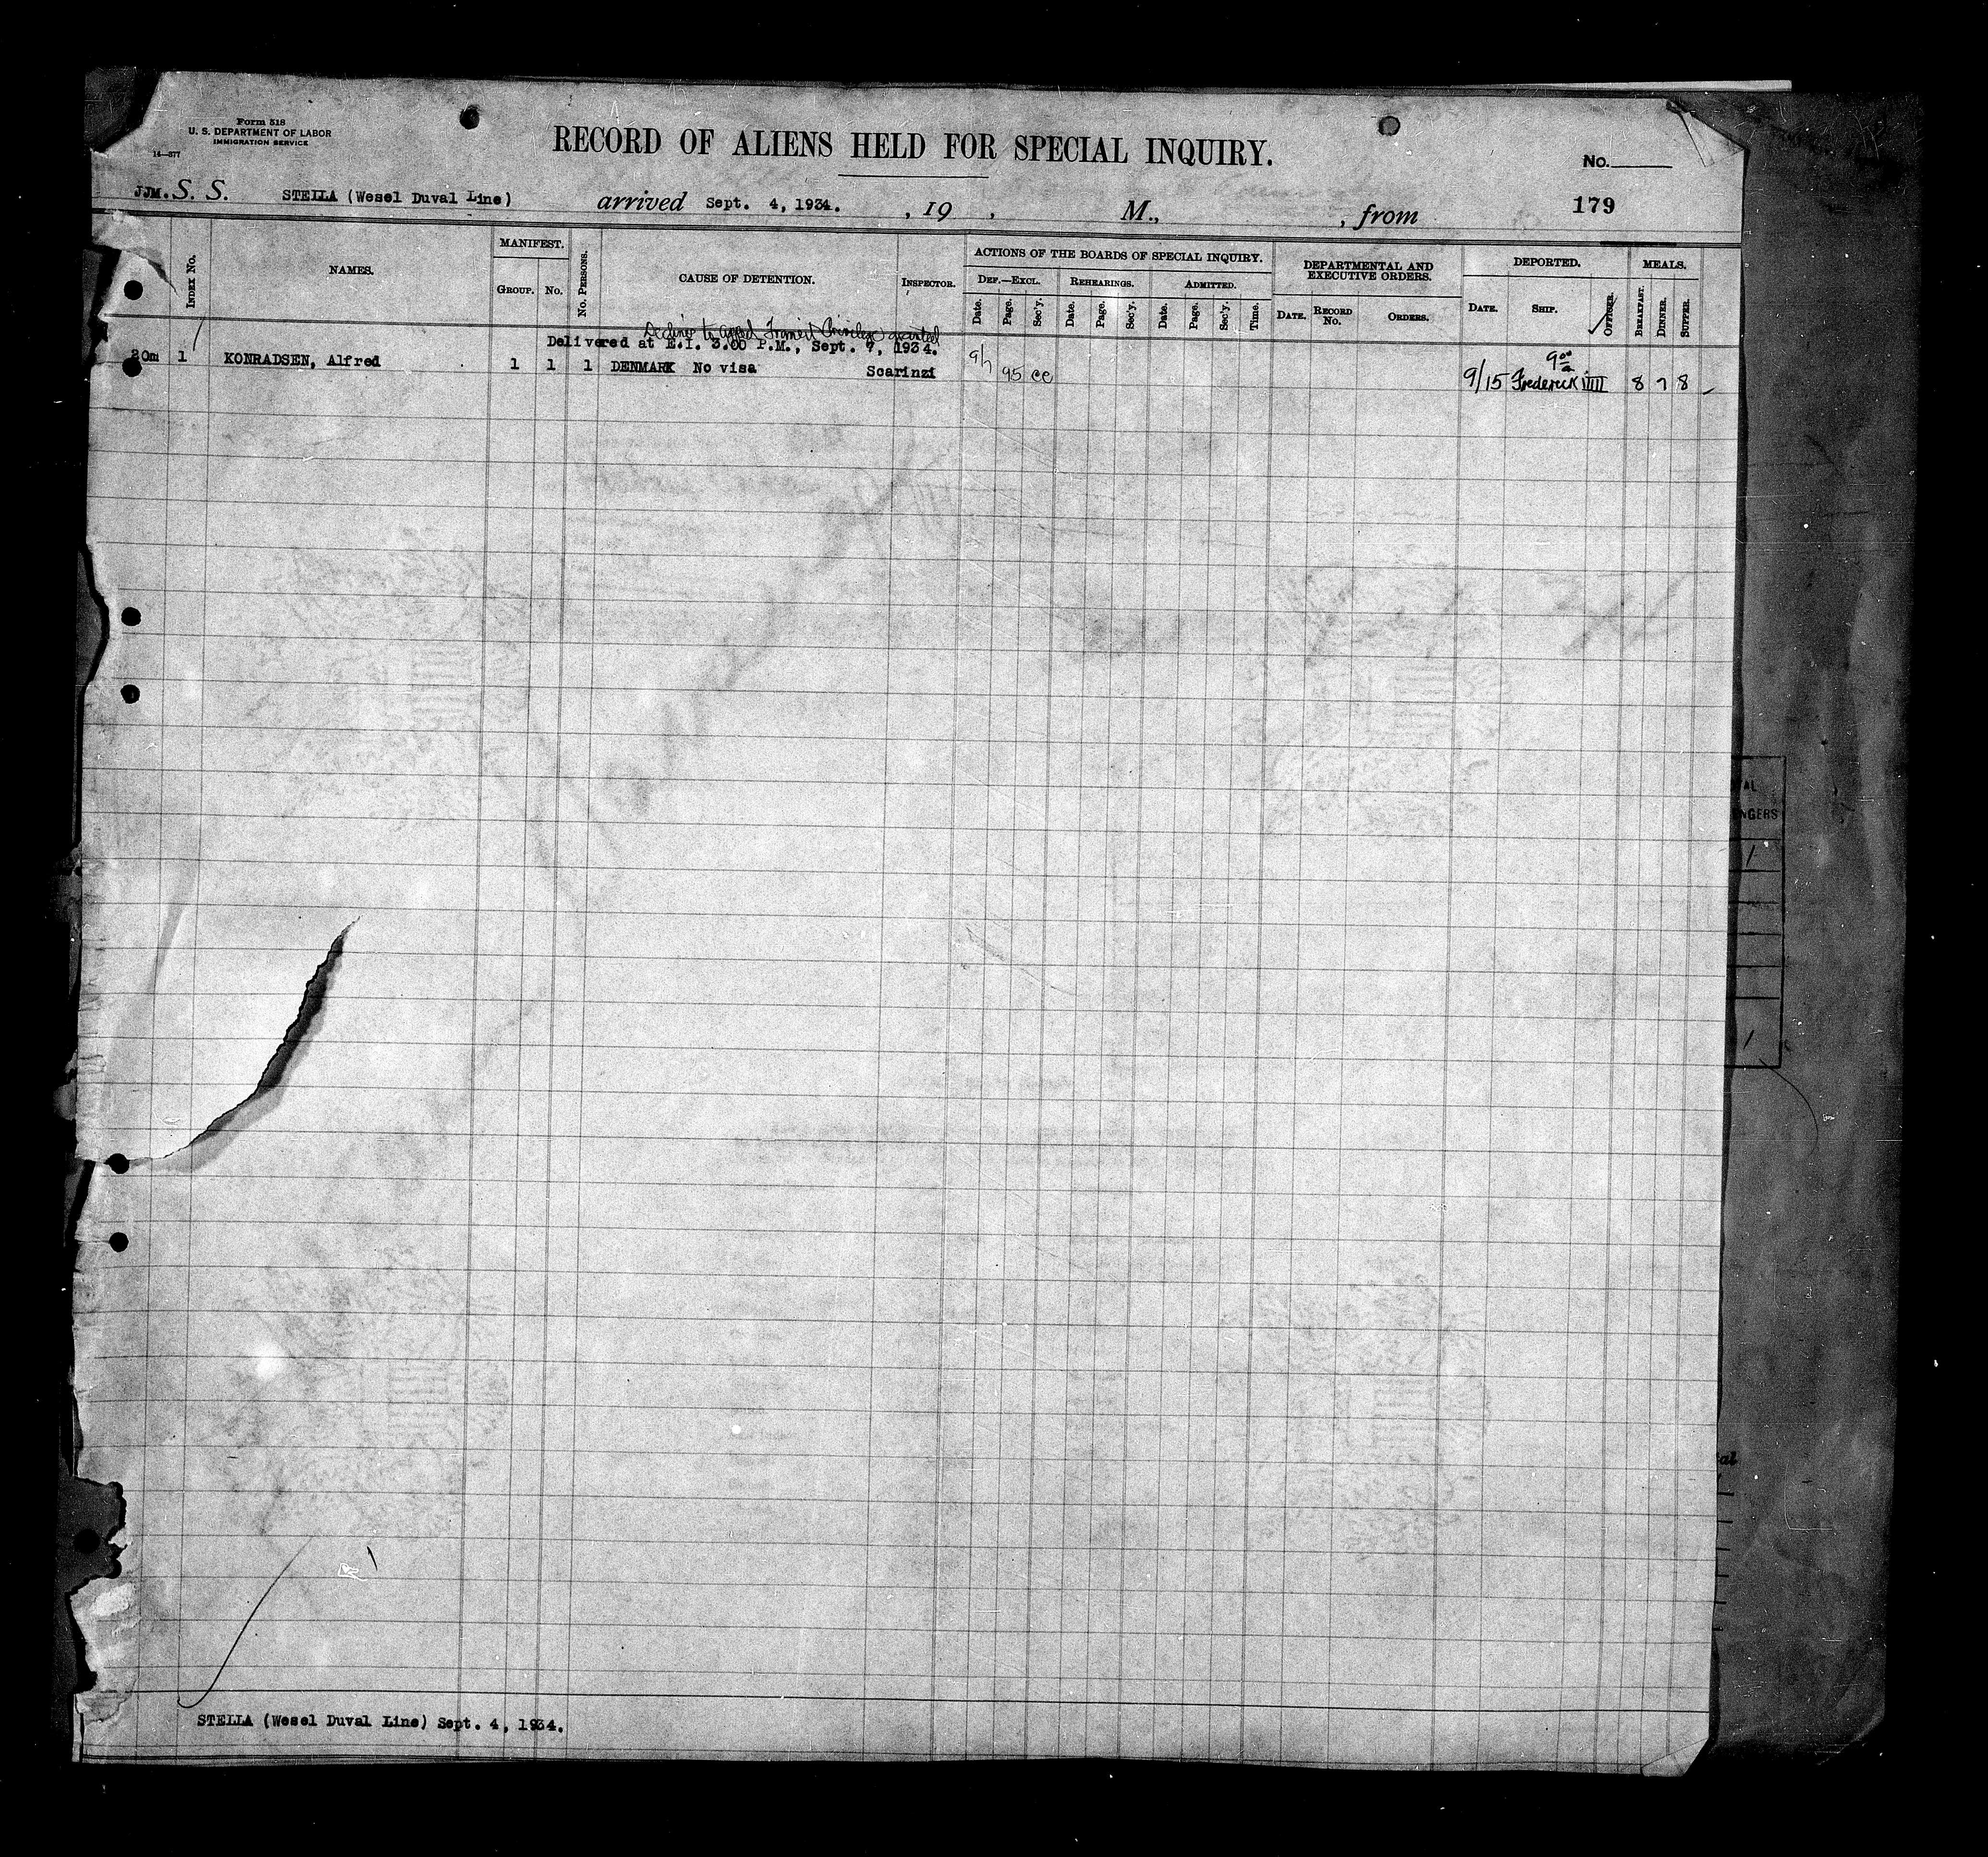 Form 518
U. S. DEPARTMENT OF LABOR
IMMIGRATION SERVICE
14—577
RECORD OF ALIENS HELD FOR SPECIAL INQUIRY.
No.
179
JJM. S. S. STELLA (Wesel Duval Line) arrived Sept. 4, 1934. , 19 , M., , from
INDEX No. NAMES. MANIFEST. GROUP. No. No. PERSONS. CAUSE OF DETENTION. INSPECTOR. ACTIONS OF THE BOARDS OF SPECIAL INQUIRY. DEPARTMENTAL AND EXECUTIVE ORDERS. DEPORTED. MEALS.
DEF.—EXCL. REHEARINGS. ADMITTED.
Date. Page. Sec'y. Date. Page. Sec'y. Date. Page. Sec'y. Time. DATE. RECORD No. ORDERS. DATE. SHIP. OFFICER. BREAKFAST. DINNER. SUPPER.
Declines to appeal Transit Privilege granted
Delivered at E.I. 3.00 P.M., Sept. 7, 1934.
20m 1 KONRADSEN, Alfred 1 1 1 DENMARK No visa Scarinzi 9/7 95 CC 9/15 Frederick VIII 9 00 a 8 7 8
AL
NGERS
/
/
al
STELLA (Wesel Duval Line) Sept. 4, 1934.